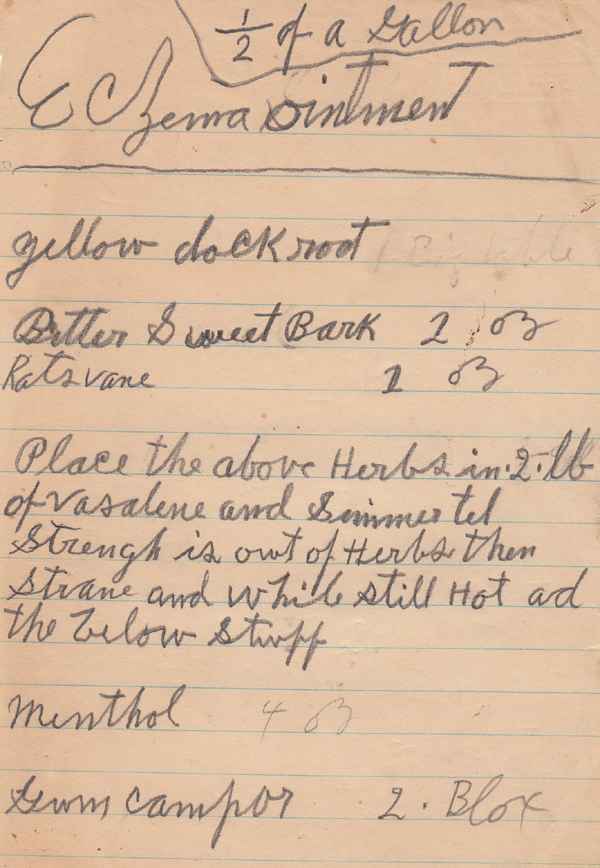 1/2 of a Gallon
Eczema ointment
yellow dock root
Bitter Sweet Bark 2 oz
Ratsvane 1 oz
Place the above Herbs in. 2. lb
of Vasalene and Simmer tel
Strengh is out of Herbs then
Strane and while still Hot ad
the below Stuff
Menthol 4 oz
Gum campor 2. Blox